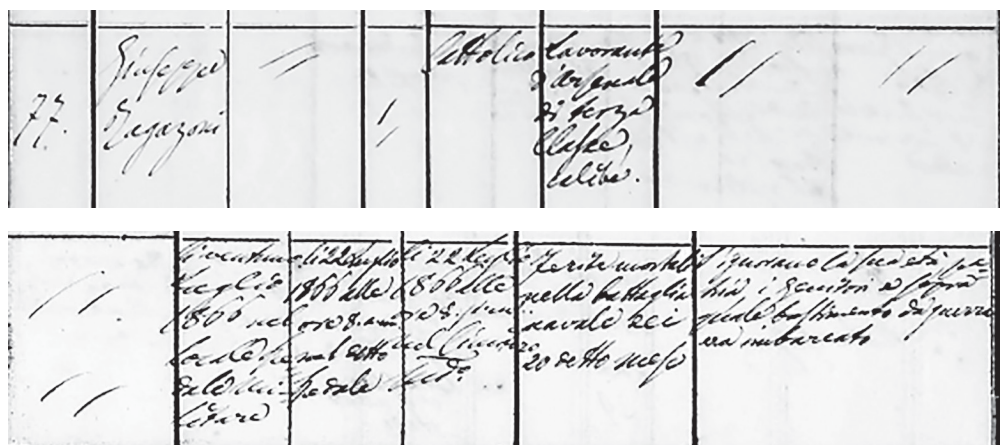 77.
Giuseppe
Ragazoni
Cattolico
Lavorante
d'arsenale
di terza
Classe,
celibe.
li ventuno
luglio
1866 nel
locale
dale Mi-
litare
li 22 luglio
1866 alle
ore 8.
nel detto
spedale
li 22 luglio
1866 alle
ore 8.
nel Cimitero
Ferite mortali
nella battaglia
navale dei
20 detto mese
S'ignorano la sua età pa-
tria i genitori e sopra
quale bastimento da guerra
era imbarcato